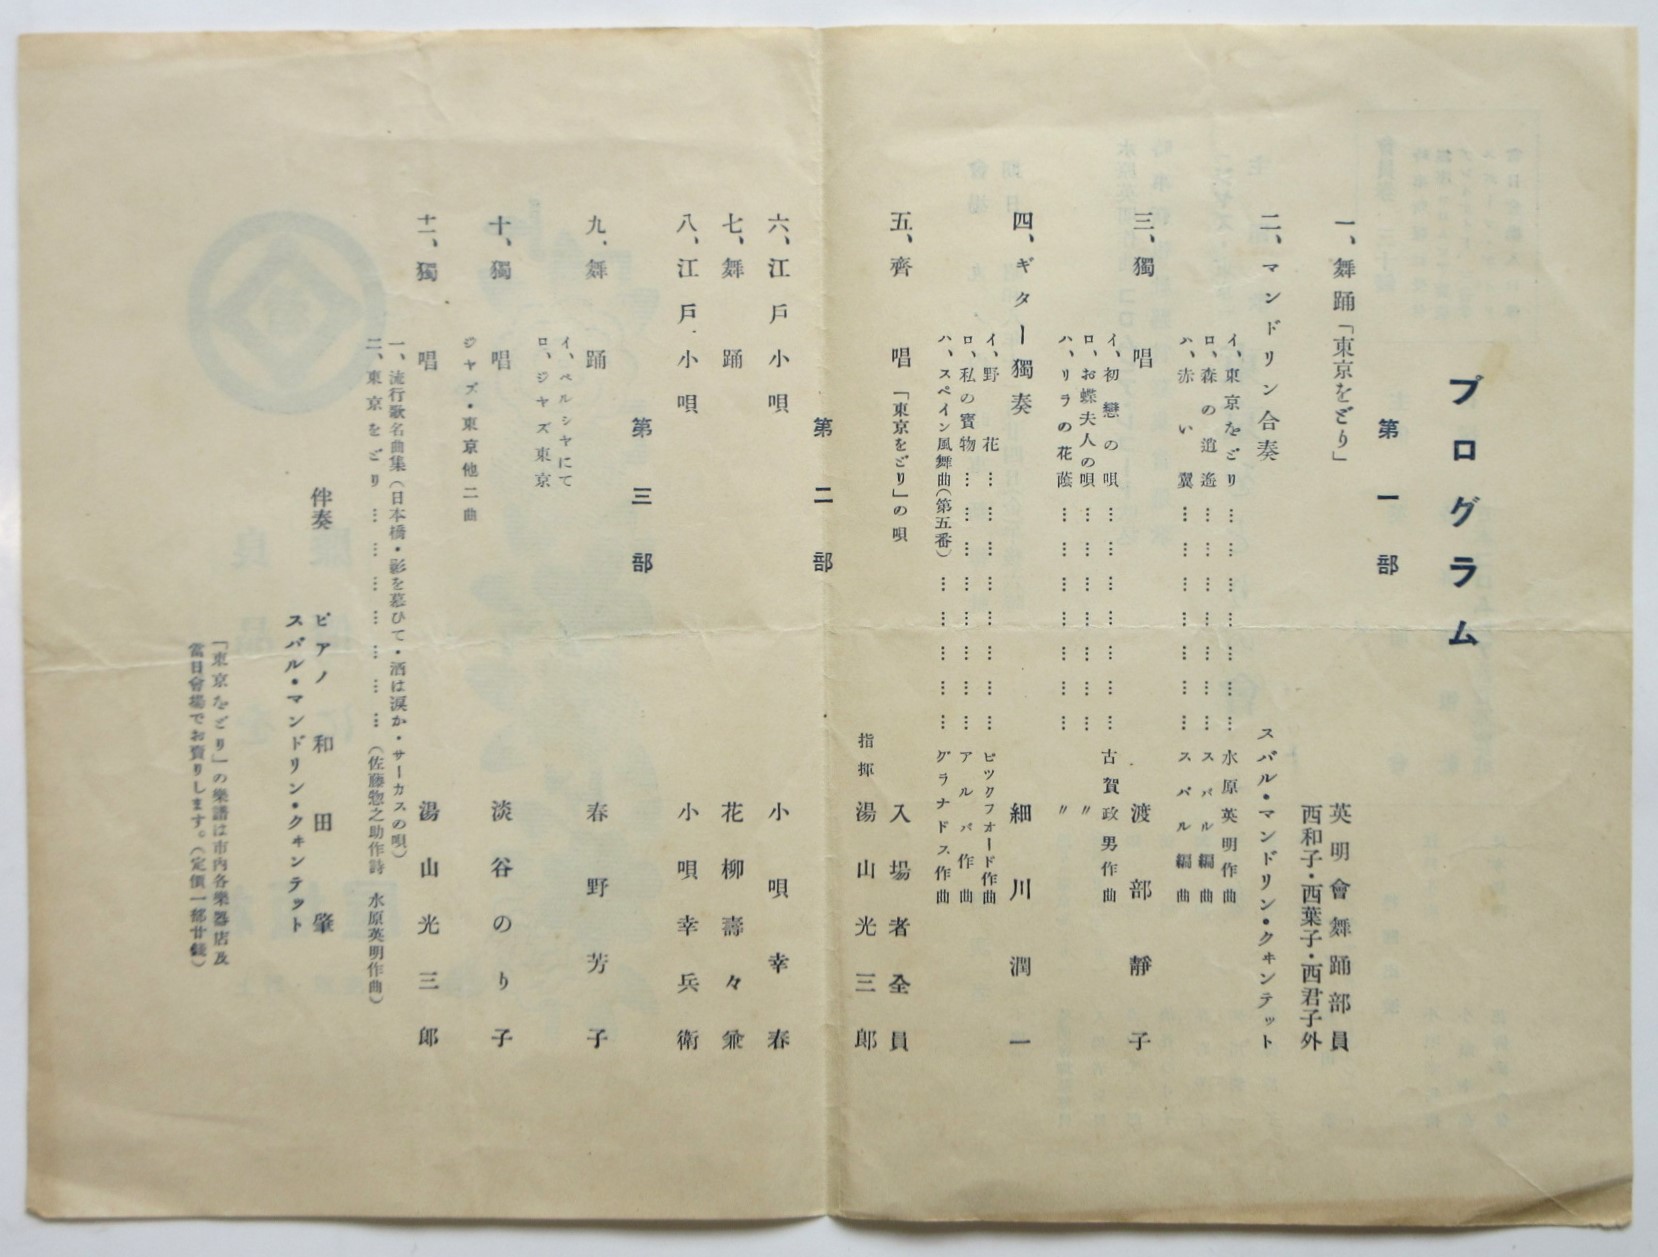 プログラム
第一部
一、舞踊「東京をどり」
英明會舞踊部員
西和子・西葉子・西君子外
二、マンドリン合奏 スバル・マンドリン・クヰンテット
イ、東京をどり……………………水原英明作曲
ロ、森の逍遙……………………スバル編曲
ハ、赤い翼……………………スバル編曲
三、獨唱 渡部靜子
イ、初戀の唄……………………古賀政男作曲
ロ、お蝶夫人の唄……………………〃
ハ、リラの花蔭……………………〃
四、ギター獨奏 細川潤一
イ、野花……………………ビックフオード作曲
ロ、私の寶物……………………アルバ作曲
ハ、スペイン風舞曲(第五番)……………グラナドス作曲
五、齊唱「東京をどり」の唄 入場者全員
指揮 湯山光三郎
第二部
六、江戸小唄 小唄幸春
七、舞踊 花柳壽々兼
八、江戸小唄 小唄幸兵衛
第三部
九、舞踊 春野芳子
イ、ペルシヤにて
ロ、ジヤズ東京
十、獨唱 淡谷のり子
ジヤズ・東京他二曲
十一、獨唱 湯山光三郎
一、流行歌名曲集(日本橋・影を慕ひて・酒は涙か・サーカスの唄)
二、東京をどり……………………(佐藤惣之助作詩 水原英明作曲)
伴奏 ピアノ 和田肇
スバル・マンドリン・クヰンテット
「東京をどり」の樂譜は市内各樂器店及
當日會場でお賣りします。(定價一部廿錢)